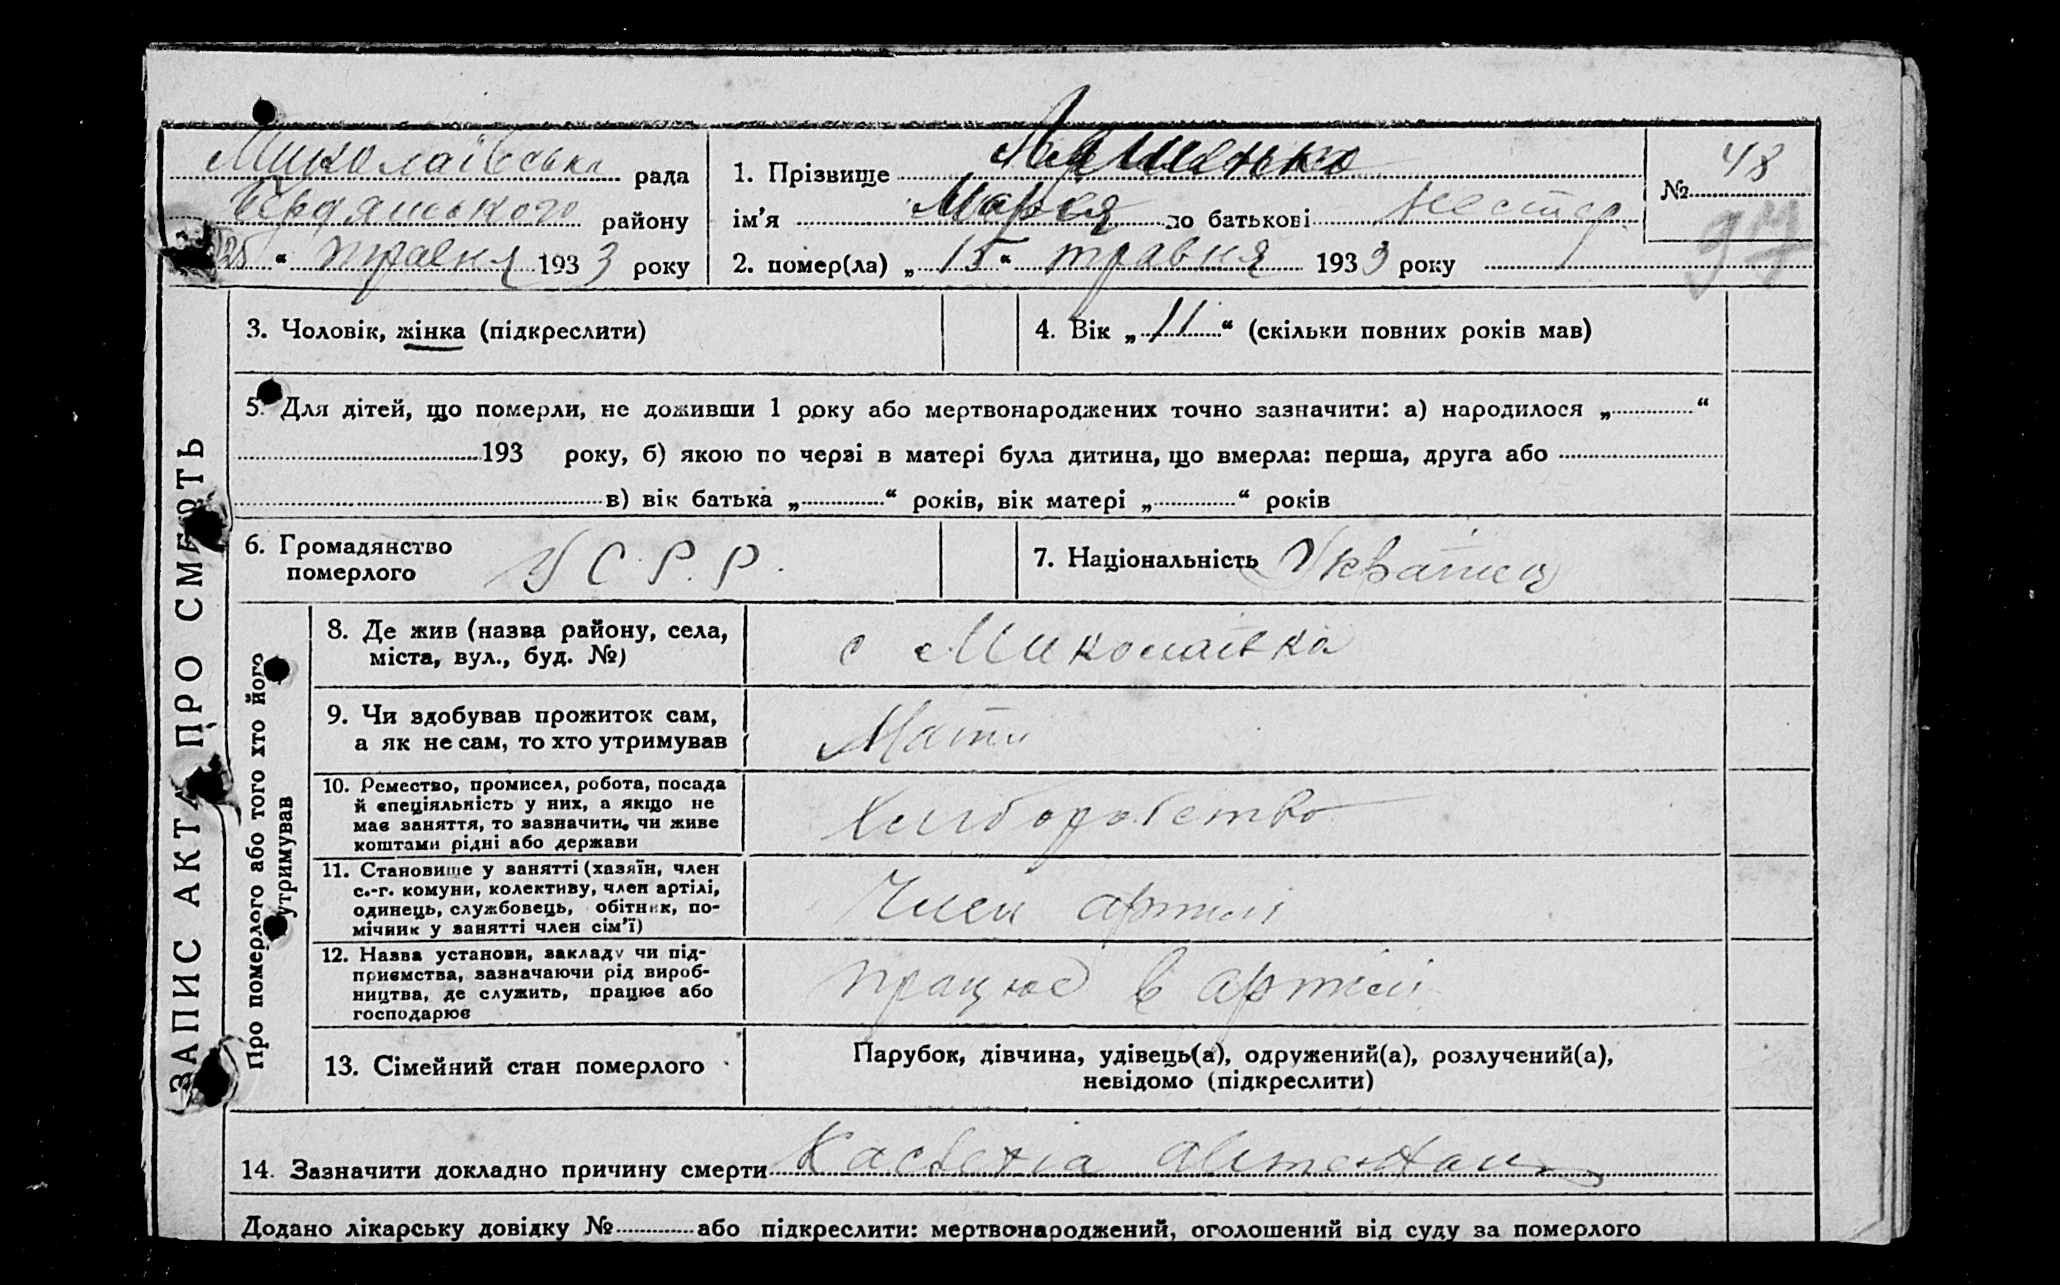 Миколаївська рада
Бердянського району
25 “ травня 1933 року
1. Прізвище Ляшенко
ім’я Марія по батькові Нестер.
2. помер(ла) „ 15 “ травня 1933 року
№ 48
97
ЗАПИС АКТА ПРО СМЕРТЬ
3. Чоловік, жінка (підкреслити)
4. Вік „ 11 “ (скільки повних років мав)
5. Для дітей, що померли, не доживши 1 року або мертвонароджених точно зазначити: а) народилося „ “
193 року, б) якою по черзі в матері була дитина, що вмерла: перша, друга або
в) вік батька „ “ років, вік матері „ “ років
6. Громадянство
померлого У С. Р. Р.
7. Національність
Про померлого або того хто його
утримував
8. Де жив (назва району, села,
міста, вул., буд. №)
с Миколаївка
9. Чи здобував прожиток сам,
а як не сам, то хто утримував
Мати
10. Ремество, промисел, робота, посада
й спеціяльність у них, а якщо не
має заняття, то зазначити, чи живе
коштами рідні або держави
Хліборобство
11. Становище у занятті (хазяїн, член
с.-г. комуни, колективу, член артілі,
одинець, службовець, обітник, по-
мічник у занятті член сім’ї)
Член артілі
12. Назва установи, закладу чи під-
приємства, зазначаючи рід вироб-
ництва, де служить, працює або
господарює
працює в артілі
13. Сімейний стан померлого
Парубок, дівчина, удівець(а), одружений(а), розлучений(а),
невідомо (підкреслити)
14. Зазначити докладно причину смерти
Додано лікарську довідку № або підкреслити: мертвонароджений, оголошений від суду за померлого